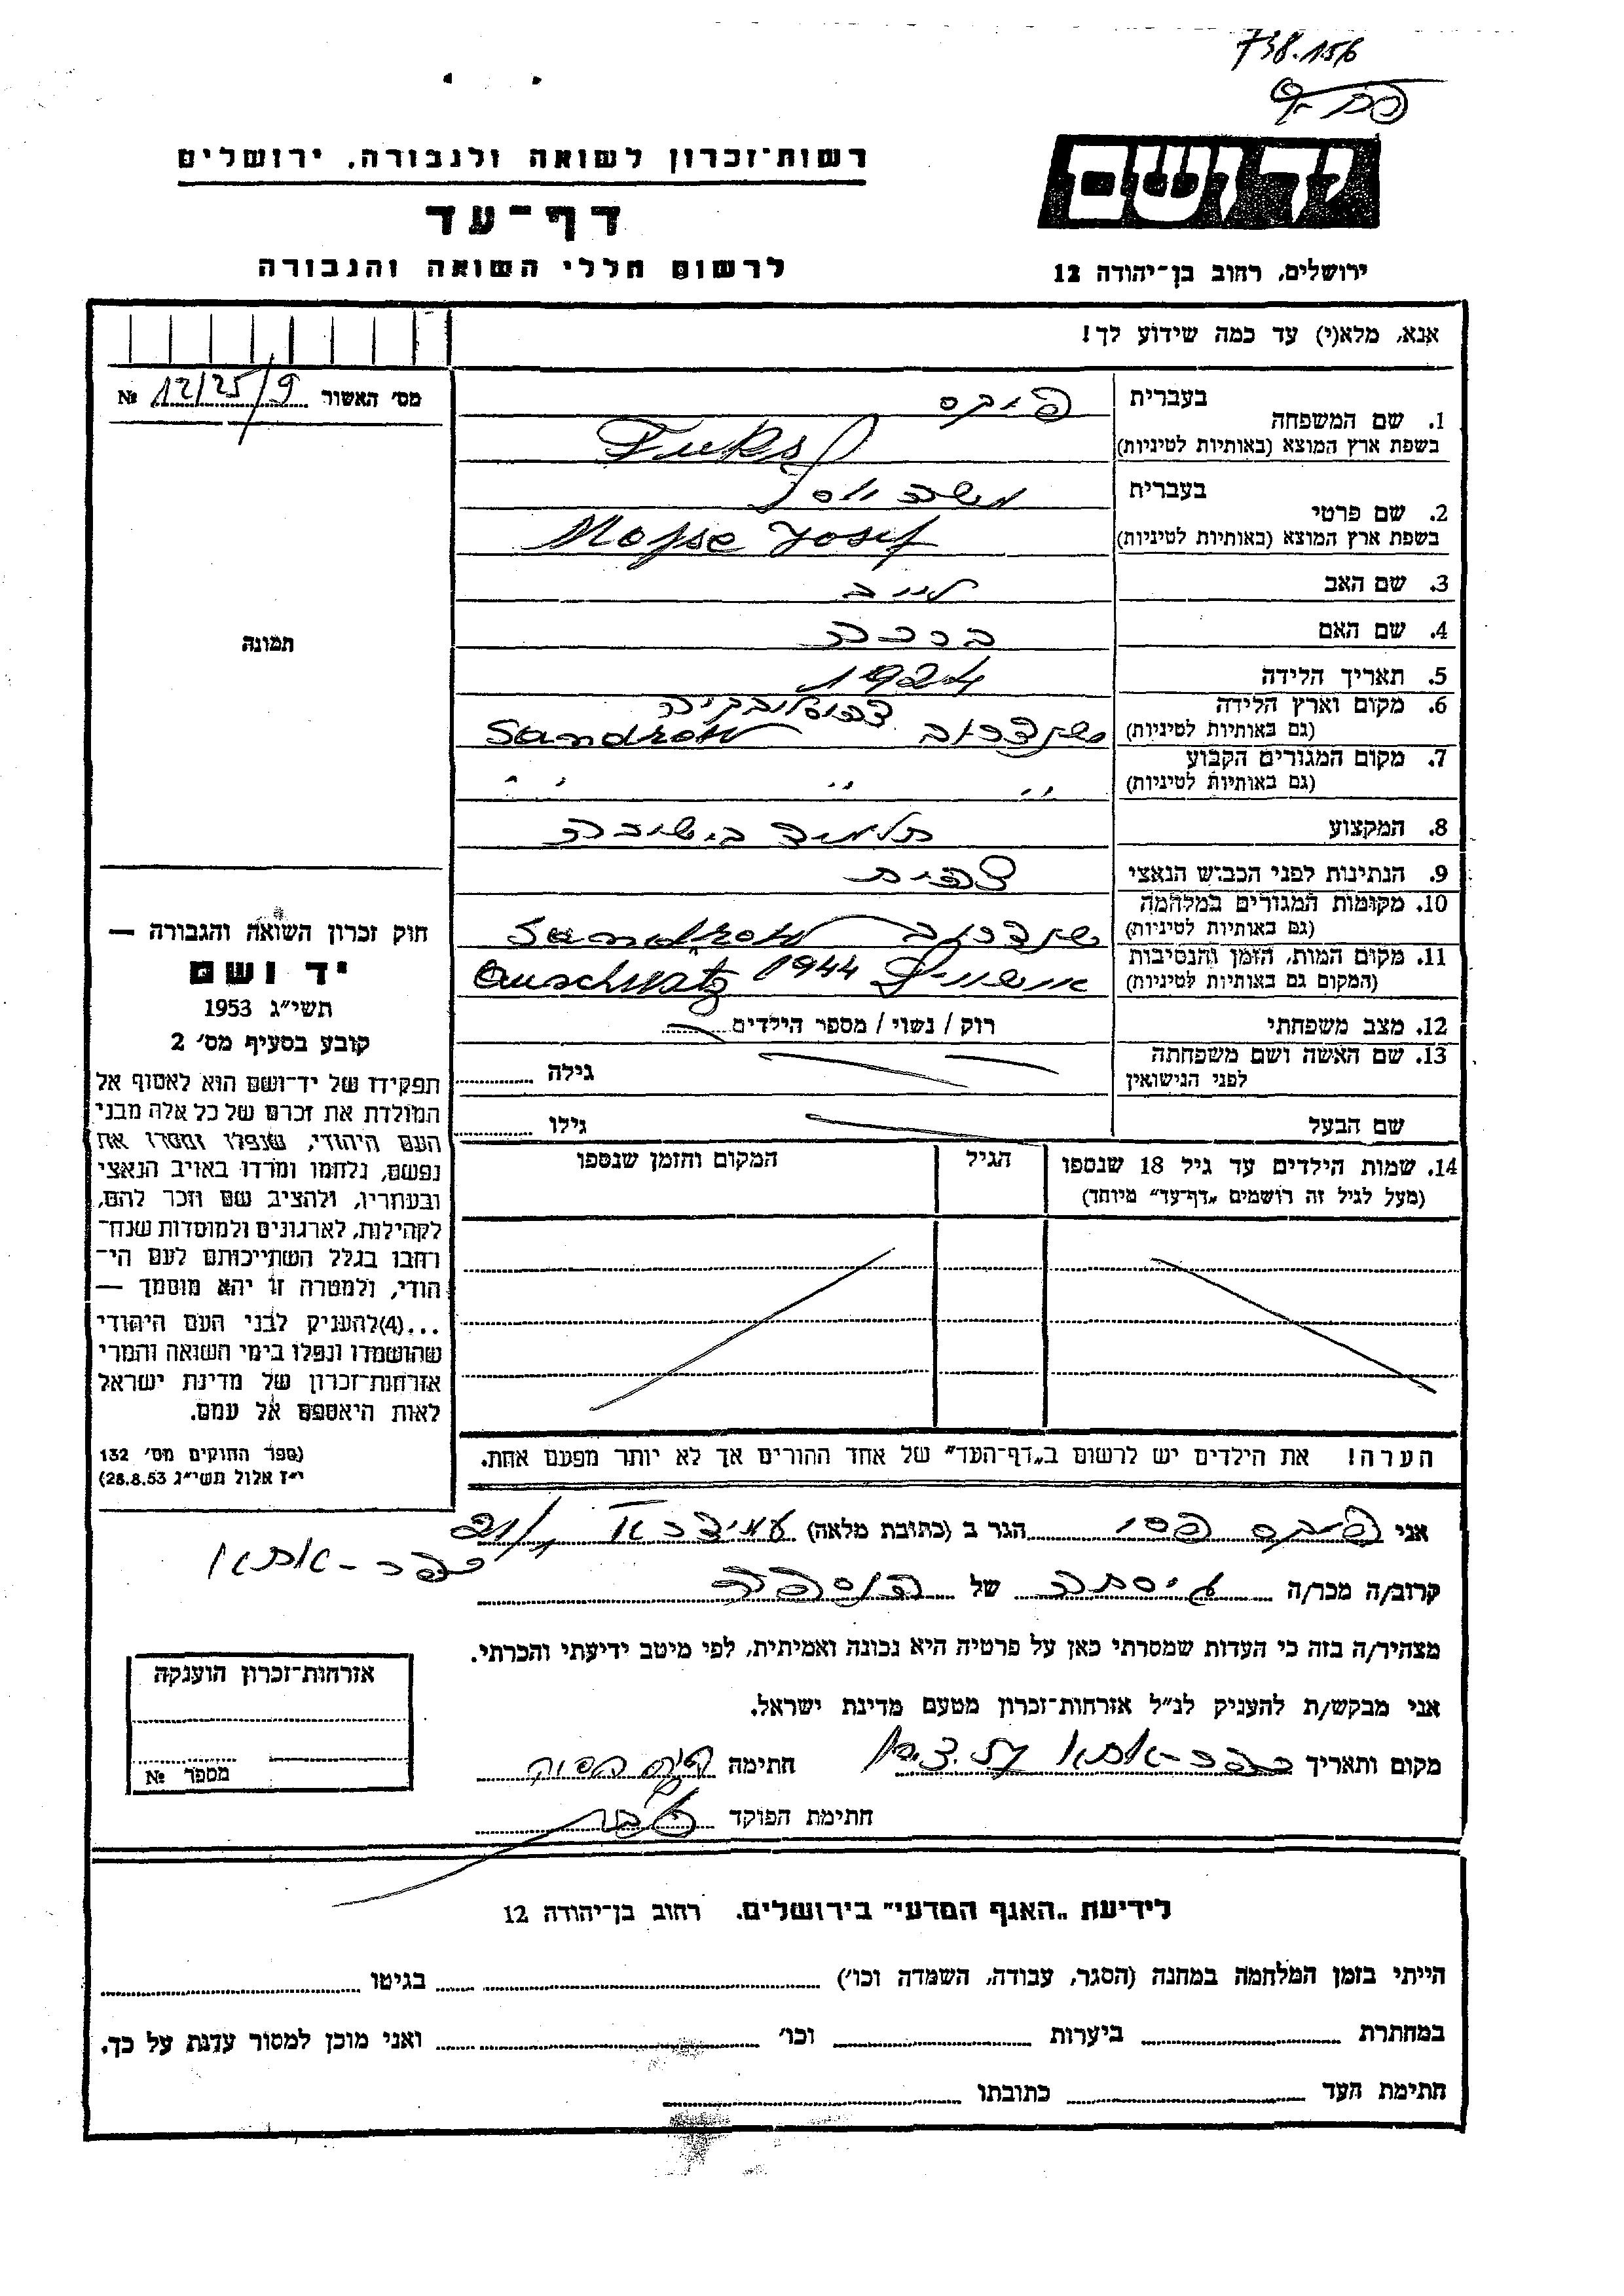 738.156
רשות־זכרון לשואה ולגבורה, ירושלים
יד ושם
דף־עד
לרשום חללי השואה והגבורה
ירושלים, רחוב בן־יהודה 12
אנא, מלא(י) עד כמה שידוע לך!
מס' האשור 12/25/9 №
1. שם המשפחה בעברית פוקס
בשפת ארץ המוצא (באותיות לטיניות) Fuks
2. שם פרטי בעברית משה יוסף
בשפת ארץ המוצא (באותיות לטיניות) Mojse Josef
3. שם האב לייב
4. שם האם
5. תאריך הלידה 1924
6. מקום וארץ הלידה (גם באותיות לטיניות) שנדרוב Sandrow צכוסלובקיה
7. מקום המגורים הקבוע (גם באותיות לטיניות) " " " "
8. המקצוע תלמיד בישיבה
9. הנתינות לפני הכבוש הנאצי צכית
10. מקומות המגורים במלחמה (גם באותיות לטיניות) שנדרוב Sandrow
11. מקום המות, הזמן והנסיבות (המקום גם באותיות לטיניות) 1944 Auschwatz
12. מצב משפחתי רוק / נשוי / מספר הילדים
13. שם האשה ושם משפחתה לפני הנישואין גילה
שם הבעל גילו
14. שמות הילדים עד גיל 18 שנספו הגיל המקום והזמן שנספו
(מעל לגיל זה רושמים „דף־עד" מיוחד)
הערה! את הילדים יש לרשום ב„דף־העד" של אחד ההורים אך לא יותר מפעם אחת.
תמונה
חוק זכרון השואה והגבורה —
יד ושם
תשי"ג 1953
קובע בסעיף מס' 2
תפקידו של יד־ושם הוא לאסוף אל
המולדת את זכרם של כל אלה מבני
העם היהודי, שנפלו ומסרו את
נפשם, נלחמו ומרדו באויב הנאצי
ובעוזריו, ולהציב שם וזכר להם,
לקהילות, לארגונים ולמוסדות שנח־
רבו בגלל השתייכותם לעם הי־
הודי, ולמטרה זו יהא מוסמך —
...(4)להעניק לבני העם היהודי
שהושמדו ונפלו בימי השואה והמרי
אזרחות־זכרון של מדינת ישראל
לאות היאספם אל עמם.
(ספר החוקים מס' 132
י"ז אלול תשי"ג 28.8.53)
אני פוקס פסי הגר ב (כתובת מלאה) עמידר א
כפר־אתא
קרוב/ה מכר/ה גיסתה של הנספה
מצהיר/ה בזה כי העדות שמסרתי כאן על פרטיה היא נכונה ואמיתית, לפי מיטב ידיעתי והכרתי.
אני מבקש/ת להעניק לנ"ל אזרחות־זכרון מטעם מדינת ישראל.
מקום ותאריך כפר־אתא חתימה
חתימת הפוקד
אזרחות־זכרון הוענקה
מספר №
לידיעת „האגף המדעי" בירושלים. רחוב בן־יהודה 12
הייתי בזמן המלחמה במחנה (הסגר, עבודה, השמדה וכו') בגיטו
במחתרת ביערות וכו' ואני מוכן למסור עדות על כך.
חתימת העד כתובתו